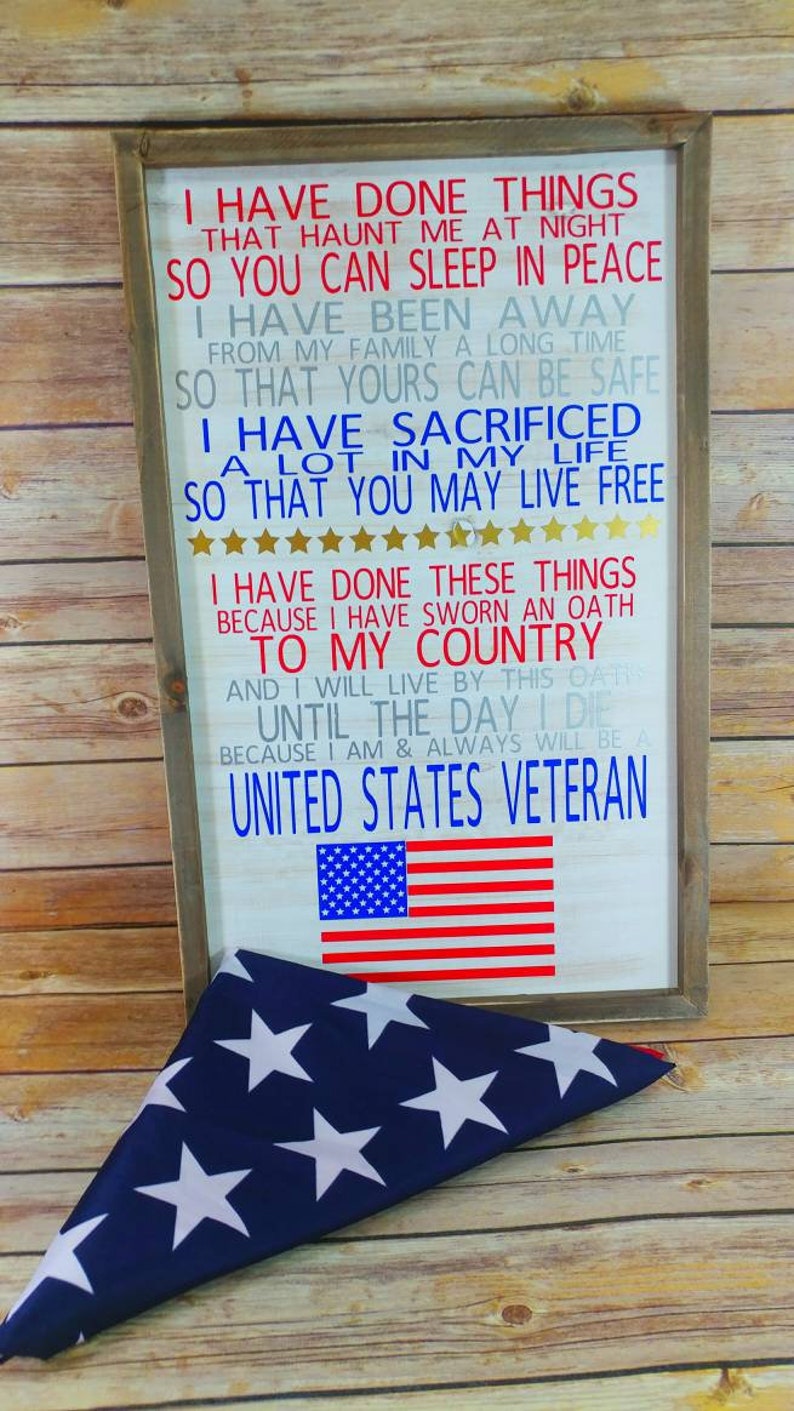 I HAVE DONE THINGS
THAT HAUNT ME AT NIGHT
SO YOU CAN SLEEP IN PEACE
I HAVE BEEN AWAY
FROM MY FAMILY A LONG TIME
SO THAT YOURS CAN BE SAFE
I HAVE SACRIFICED
A LOT IN MY LIFE
SO THAT YOU MAY LIVE FREE
I HAVE DONE THESE THINGS
BECAUSE I HAVE SWORN AN OATH
TO MY COUNTRY
AND I WILL LIVE BY THIS OATH
UNTIL THE DAY I DIE
BECAUSE I AM & ALWAYS WILL BE A
UNITED STATES VETERAN